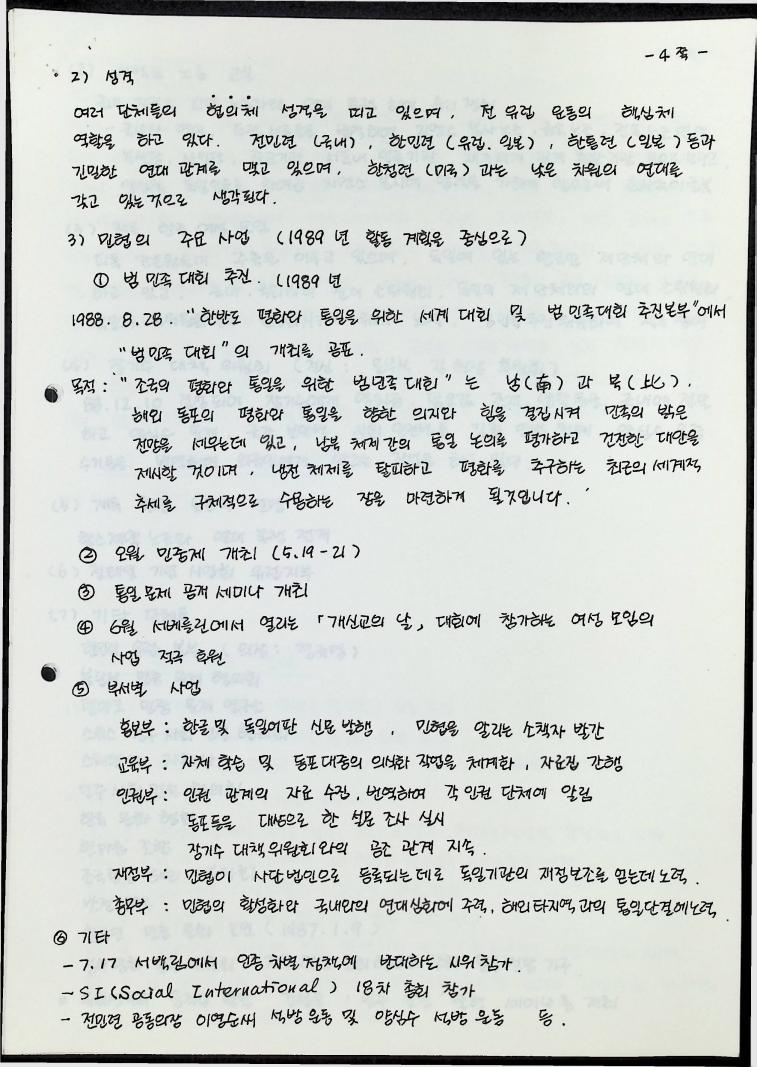 - 4 쪽 -
2) 성격
여러 단체들의 협의체 성격을 띠고 있으며, 전 유럽 운동의 핵심체
역할을 하고 있다. 전민련 (국내), 한민련 (유럽, 일본), 한통련 (일본) 등과
긴밀한 연대 관계를 맺고 있으며, 한청련 (미국) 과는 낮은 차원의 연대를
갖고 있는 것으로 생각된다.
3) 민협의 주요 사업 (1989 년 활동 계획을 중심으로)
① 범 민족 대회 추진. (1989 년
1988. 8. 28. "한반도 평화와 통일을 위한 세계 대회 및 범 민족대회 추진본부"에서
"범민족 대회"의 개최를 공표.
목적 : "조국의 평화와 통일을 위한 범민족 대회"는 남(南)과 북(北).
해외 동포의 평화와 통일을 향한 의지와 힘을 결집시켜 민족의 밝은
전망을 세우는데 있고, 남북 체제 간의 통일 논의를 평가하고 건전한 대안을
제시할 것이며, 냉전 체제를 탈피하고 평화를 추구하는 최근의 세계적
추세를 구체적으로 수용하는 장을 마련하게 될것입니다.
② 오월 민중제 개최 (5.19-21)
③ 통일 문제 공개 세미나 개최
④ 6월 서베를린에서 열리는 「개신교의 날」 대회에 참가하는 여성 모임의
사업 적극 후원
⑤ 부서별 사업
홍보부 : 한글 및 독일어판 신문 발행, 민협을 알리는 소책자 발간
교육부 : 자체 학습 및 동포 대중의 의식화 작업을 체계화, 자료집 간행
인권부 : 인권 관계의 자료 수집, 번역하여 각 인권 단체에 알림
동포들을 대상으로 한 설문 조사 실시
장기수 대책위원회와의 공조 관계 지속.
재정부 : 민협이 사단 법인으로 등록되는데로 독일기관의 재정보조를 얻는데 노력.
총무부 : 민협의 활성화와 국내외의 연대심화에 주력, 해외 타지역과의 통일단결에 노력.
⑥ 기타
- 7.17 서백림에서 인종 차별 정책에 반대하는 시위 참가.
- SI (Social International) 18차 총회 참가
- 전민련 공동의장 이영순씨 석방 운동 및 양심수 석방 운동 등.